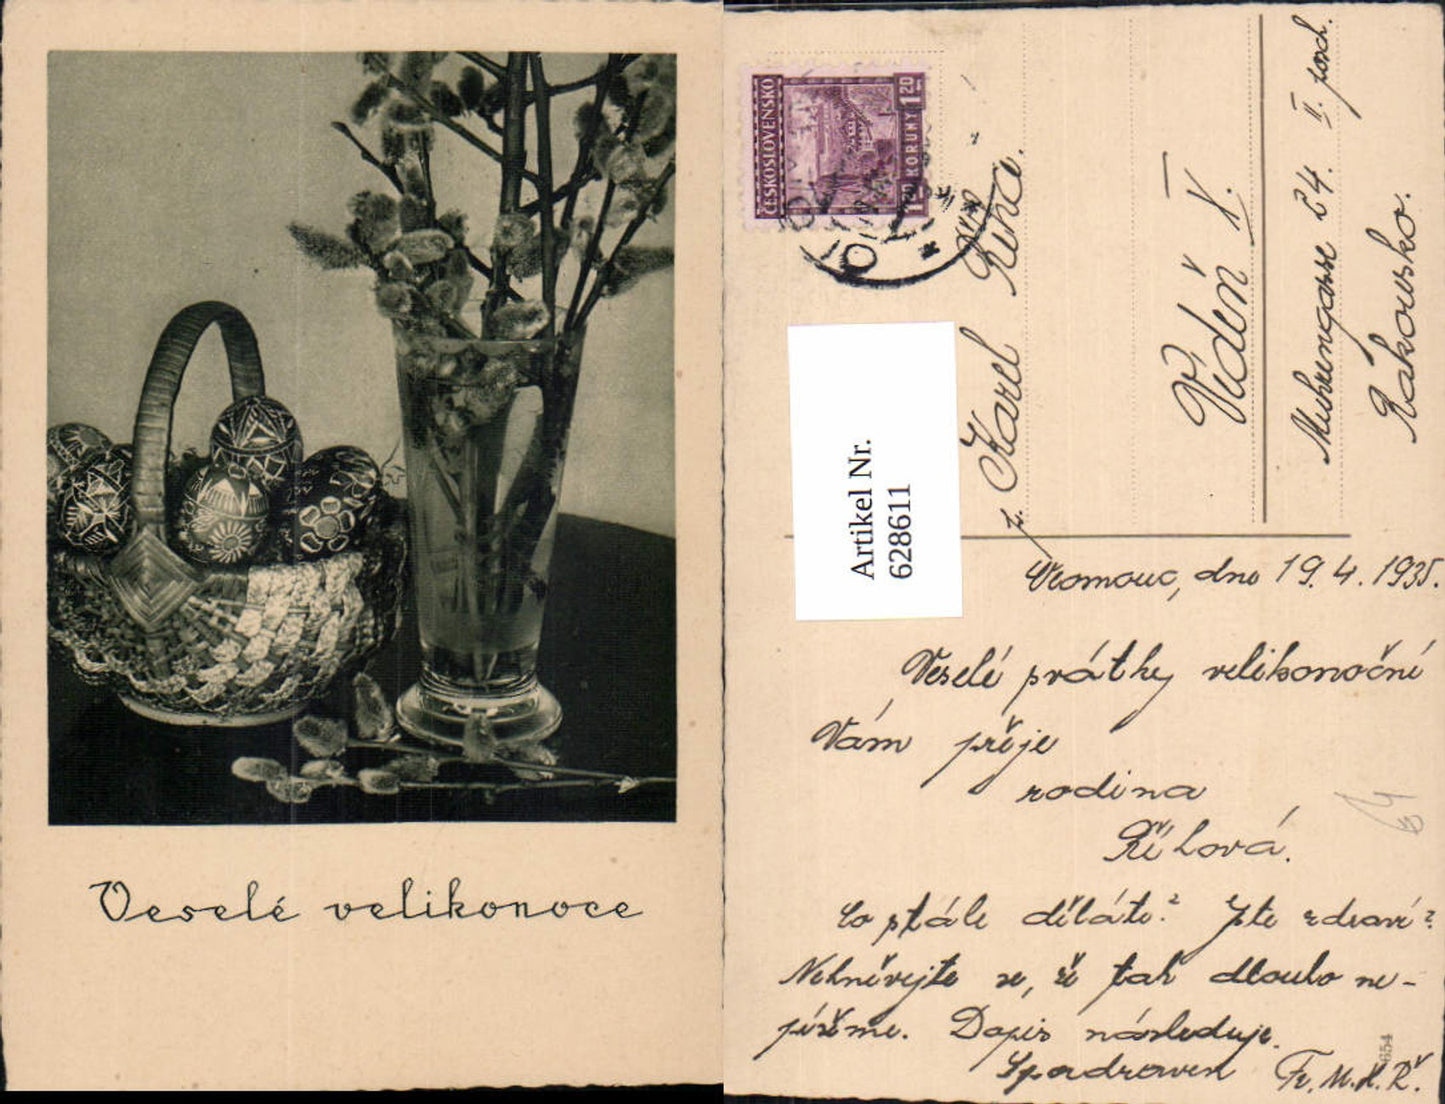 Veselé velikonoce
ČESKOSLOVENSKO
1.20 KORUNY 1.20
p. Karel Řiha.
Vídeň X.
24. II. posch.
Rakousko.
Artikel Nr.
628611
Olomouc, dne 19.4.1935.
Veselé svátky velikonoční
Vám přeje
rodina
Říhová.
Co stále děláte? Jste zdraví?
Nehněvejte se, že tak dlouho ne-
píšeme. Dopis následuje.
S pozdravem Fr. M. K. Ř.
654